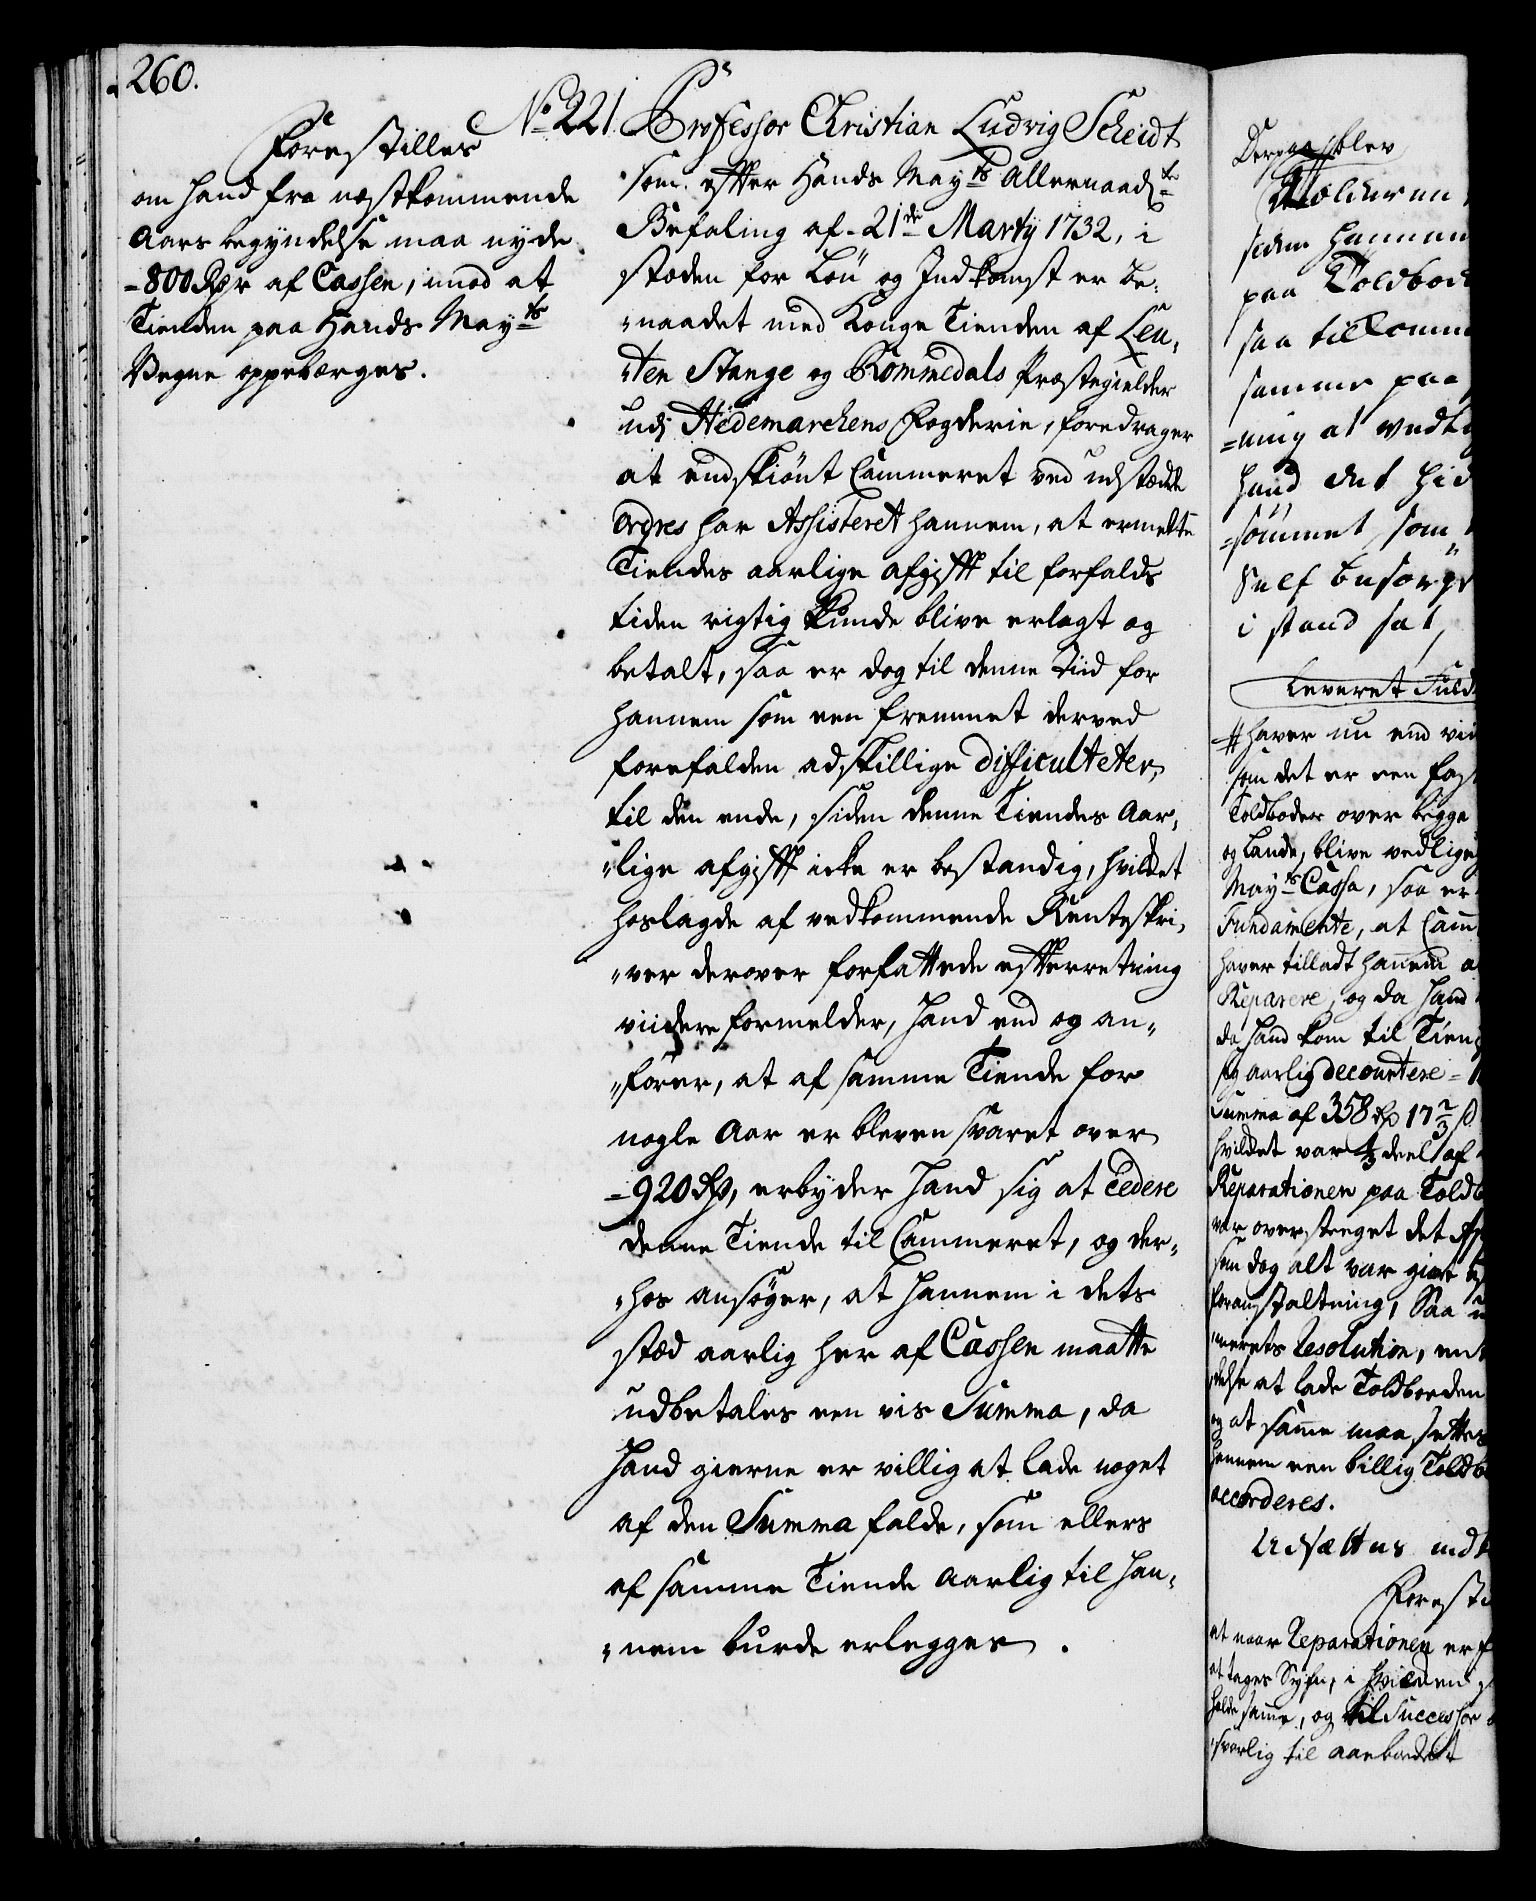 260.
Forestilles
om hand fra næstkommende
Aars begyndelse maa nyde
-800 Rdr af Cassen, imod at
Tienden paa Hands Mayts
Vegne oppebærges.
No 221. Professor Christian Ludvig Scheidt
som efter Hands Mayts Allernaadste
Befaling af 21de Martij 1732, i
stæden for Løn og Indkomst er be-
naadet med Konge Tienden af Leu-
ten Stange og Rommedals Præstegielder
udj Hedemarchens Fogderie, foredrager
at endskiønt Cammeret ved udstædde
ordres har Assisteret hannem, at ermelte
Tiendes aarlige afgifft til forfalds
tiden rigtig kunde blive erlagt og
betalt, saa er dog til denne Tiid for
hannem som een fremmet derved
forefalden adskillige difficulteter,
til den ende, siden denne Tiendes Aar-
lige afgifft icke er bestandig, hvilket
hoslagde af vedkommende Renteskri-
ver derover forfattede efterretning
viidere formelder, hand end og an-
fører, at af samme Tiende for
nogle Aar er bleven svaret over
-920 Rdr, erbyder hand sig at cedere
denne Tiende til Cammeret, og der-
hos ansøger, at hannem i dets
stæd aarlig her af Cassen maatte
udbetales een vis Summa, da
hand gierne er villig at lade noget
af den Summa falde, som ellers
af samme Tiende Aarlig til han-
nem burde erlegges.
blev
paa Toldbod
saa tilkomm
samme paa
hand det hid
sømmet, som
Self besørge
i stand sat,
Leveret Fuld
haver nu end vii
som det er een fast
Toldboder over begge
og Lande, blive vedlige
Mayts Cassa, saa er
Fundamente, at Cam
haver tilladt hannem a
Reparere, og da hand
da hand kom til Tien
sig aarlig decourtere
Summa af 358 Rdr 17 2/3 s
hvilket var deel af
Reparationen paa Toldb
var oversteeget det
som dog alt var giort
foranstaltning, Saa
merets Resolution, en
delse at lade Toldboeden
og at samme maa settes
hannem een billig Toldb
accorderes.
Udsættes indt
Foresti
at naar Reparationen er f
at tages Syhn, i hvilken
holde samme, og til Successor
svarlig til aarbødet